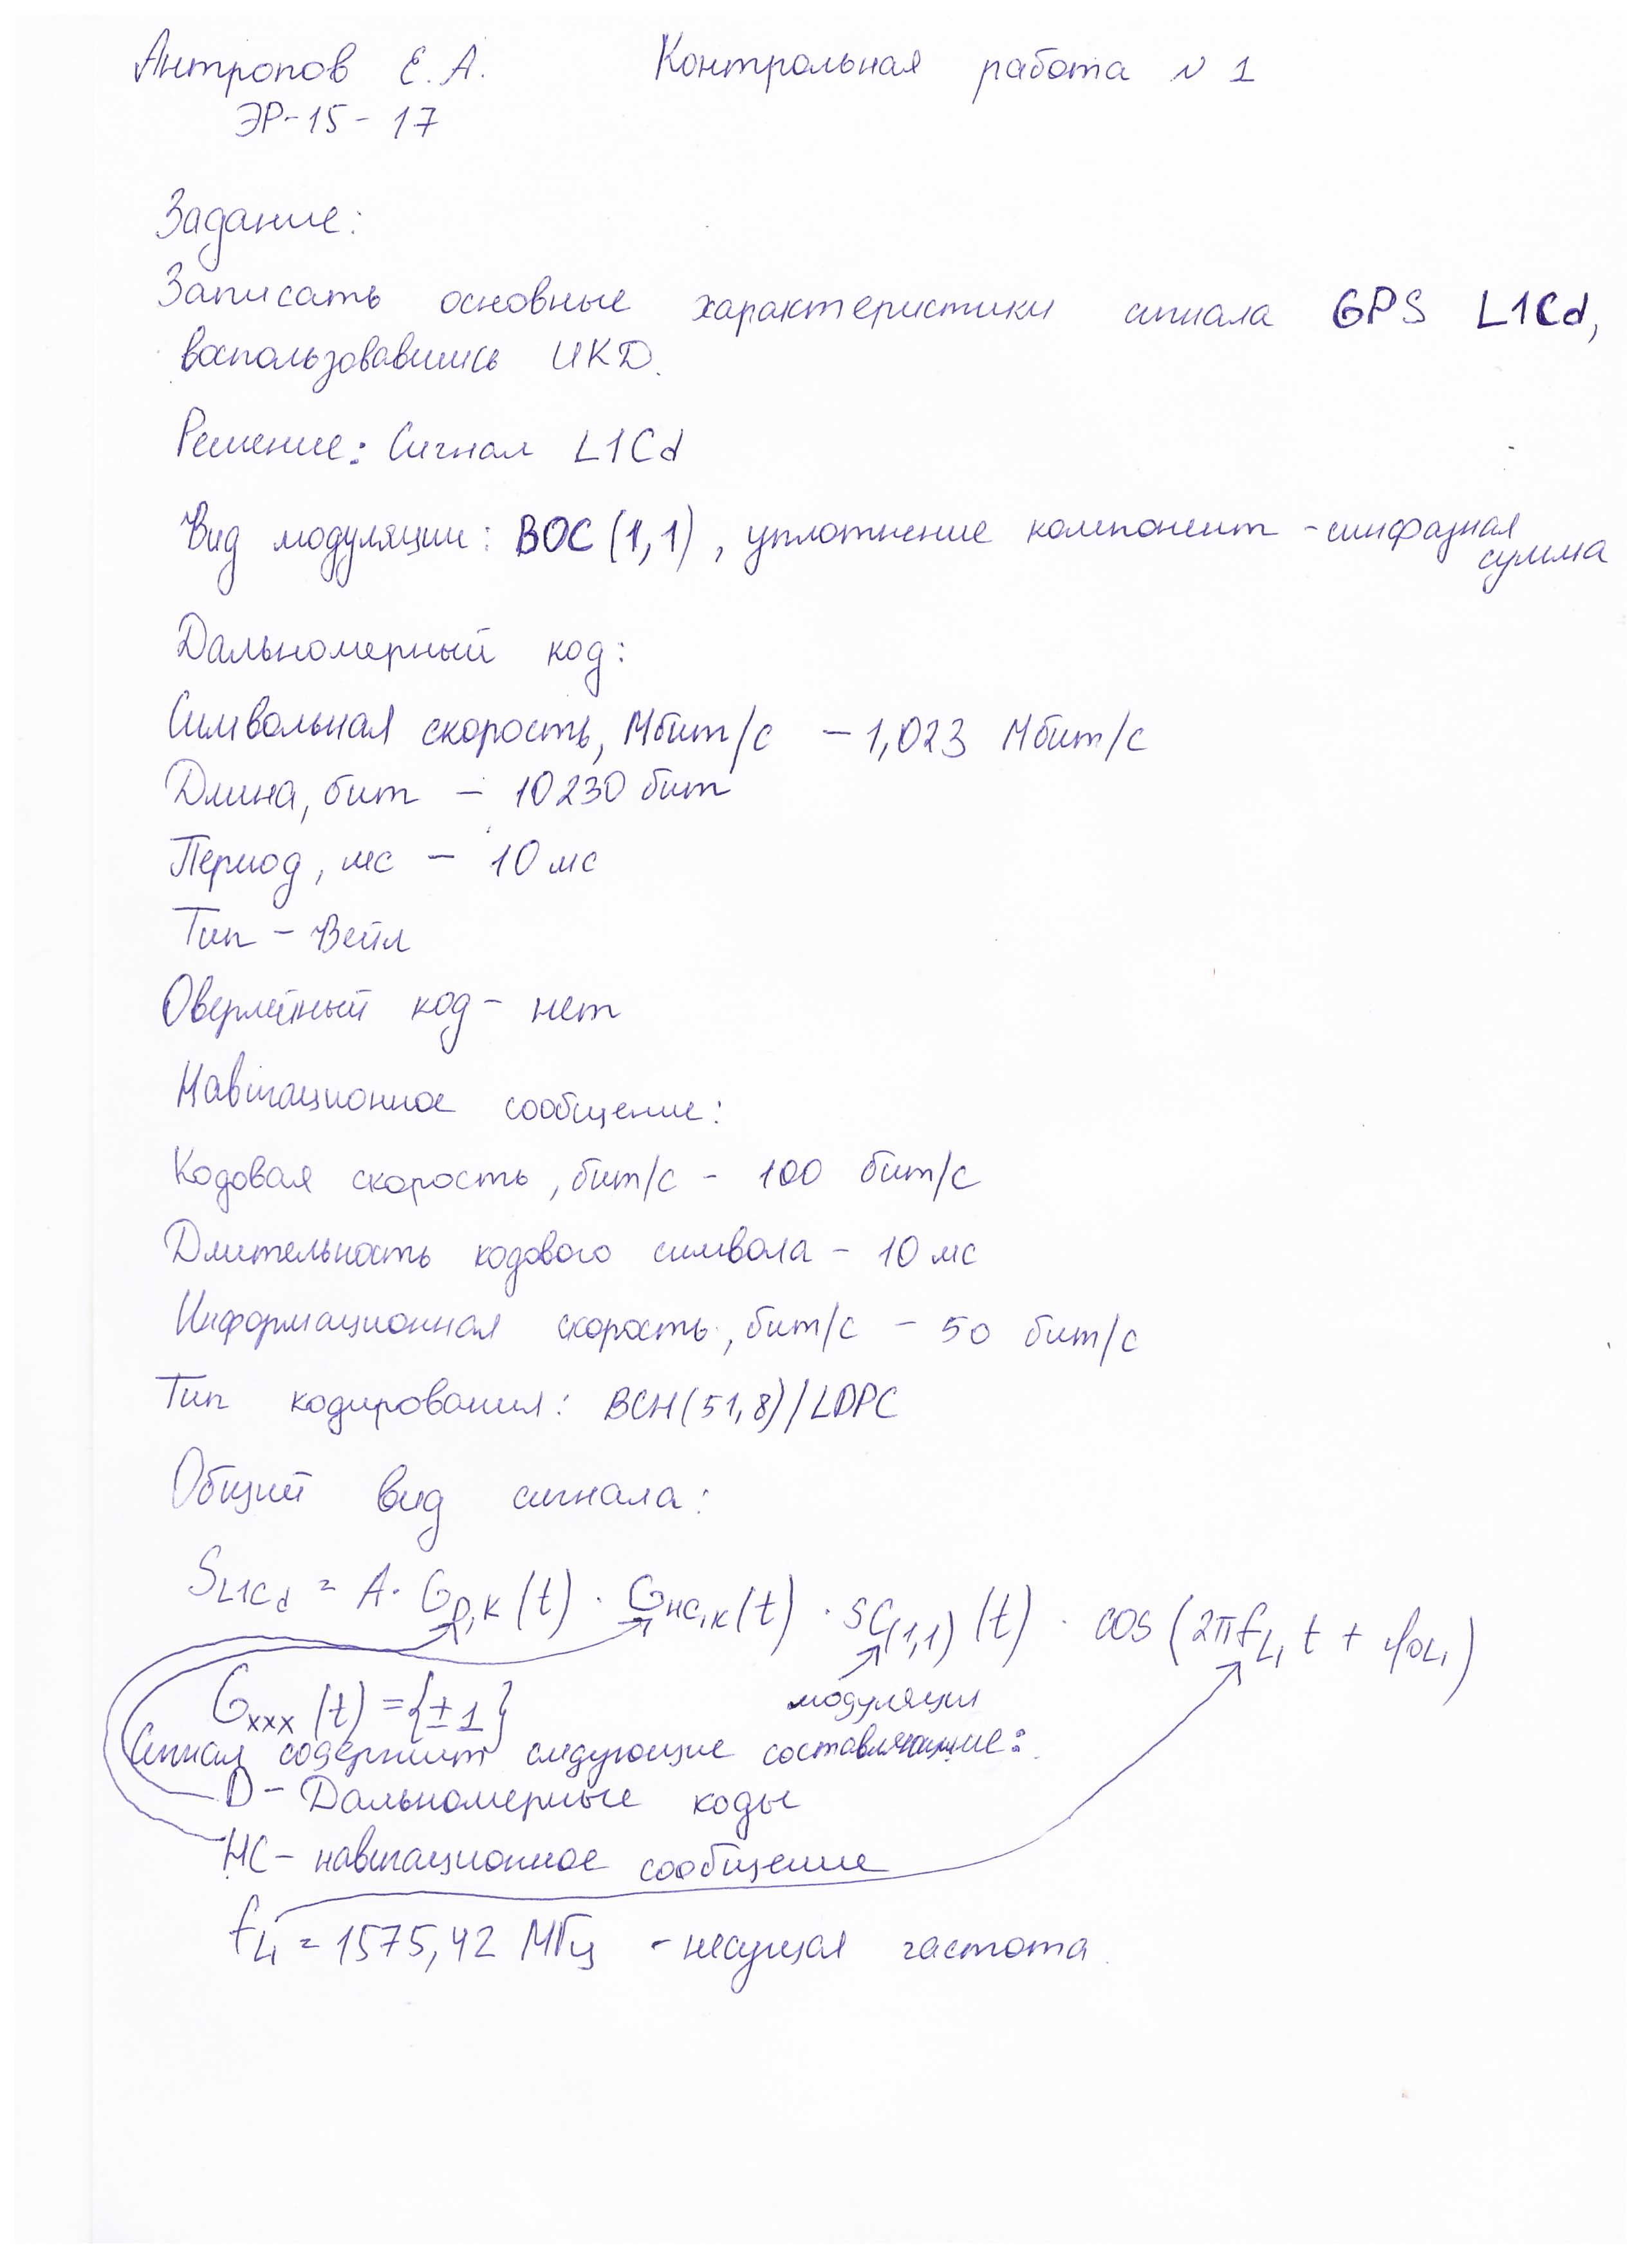 Антропов Е.А. Контрольная работа N 1
ЭР-15-17
Задание:
Записать основные характеристики сигнала GPS L1Cd,
воспользовавшись ИКД.
Решение: Сигнал L1Cd
Вид модуляции: BOC(1,1), уплотнение компонент - синфазная
сумма
Дальномерный код:
Символьная скорость, Мбит/с - 1,023 Мбит/с
Длина, бит - 10230 бит
Период, мс - 10 мс
Тип - Вейл
Оверлейный код - нет
Навигационное сообщение:
Кодовая скорость, бит/с - 100 бит/с
Длительность кодового символа - 10 мс
Информационная скорость, бит/с - 50 бит/с
Тип кодирования: BCH(51,8)/LDPC
Общий вид сигнала:
S_L1Cd = A · G_D,K(t) · G_НС,K(t) · SC_(1,1)(t) · cos(2πf_L1 t + φ_0L1)
G_xxx(t) = {±1}
модуляция
Сигнал содержит следующие составляющие:
D - Дальномерные коды
НС - навигационное сообщение
f_L1 = 1575,42 МГц - несущая частота